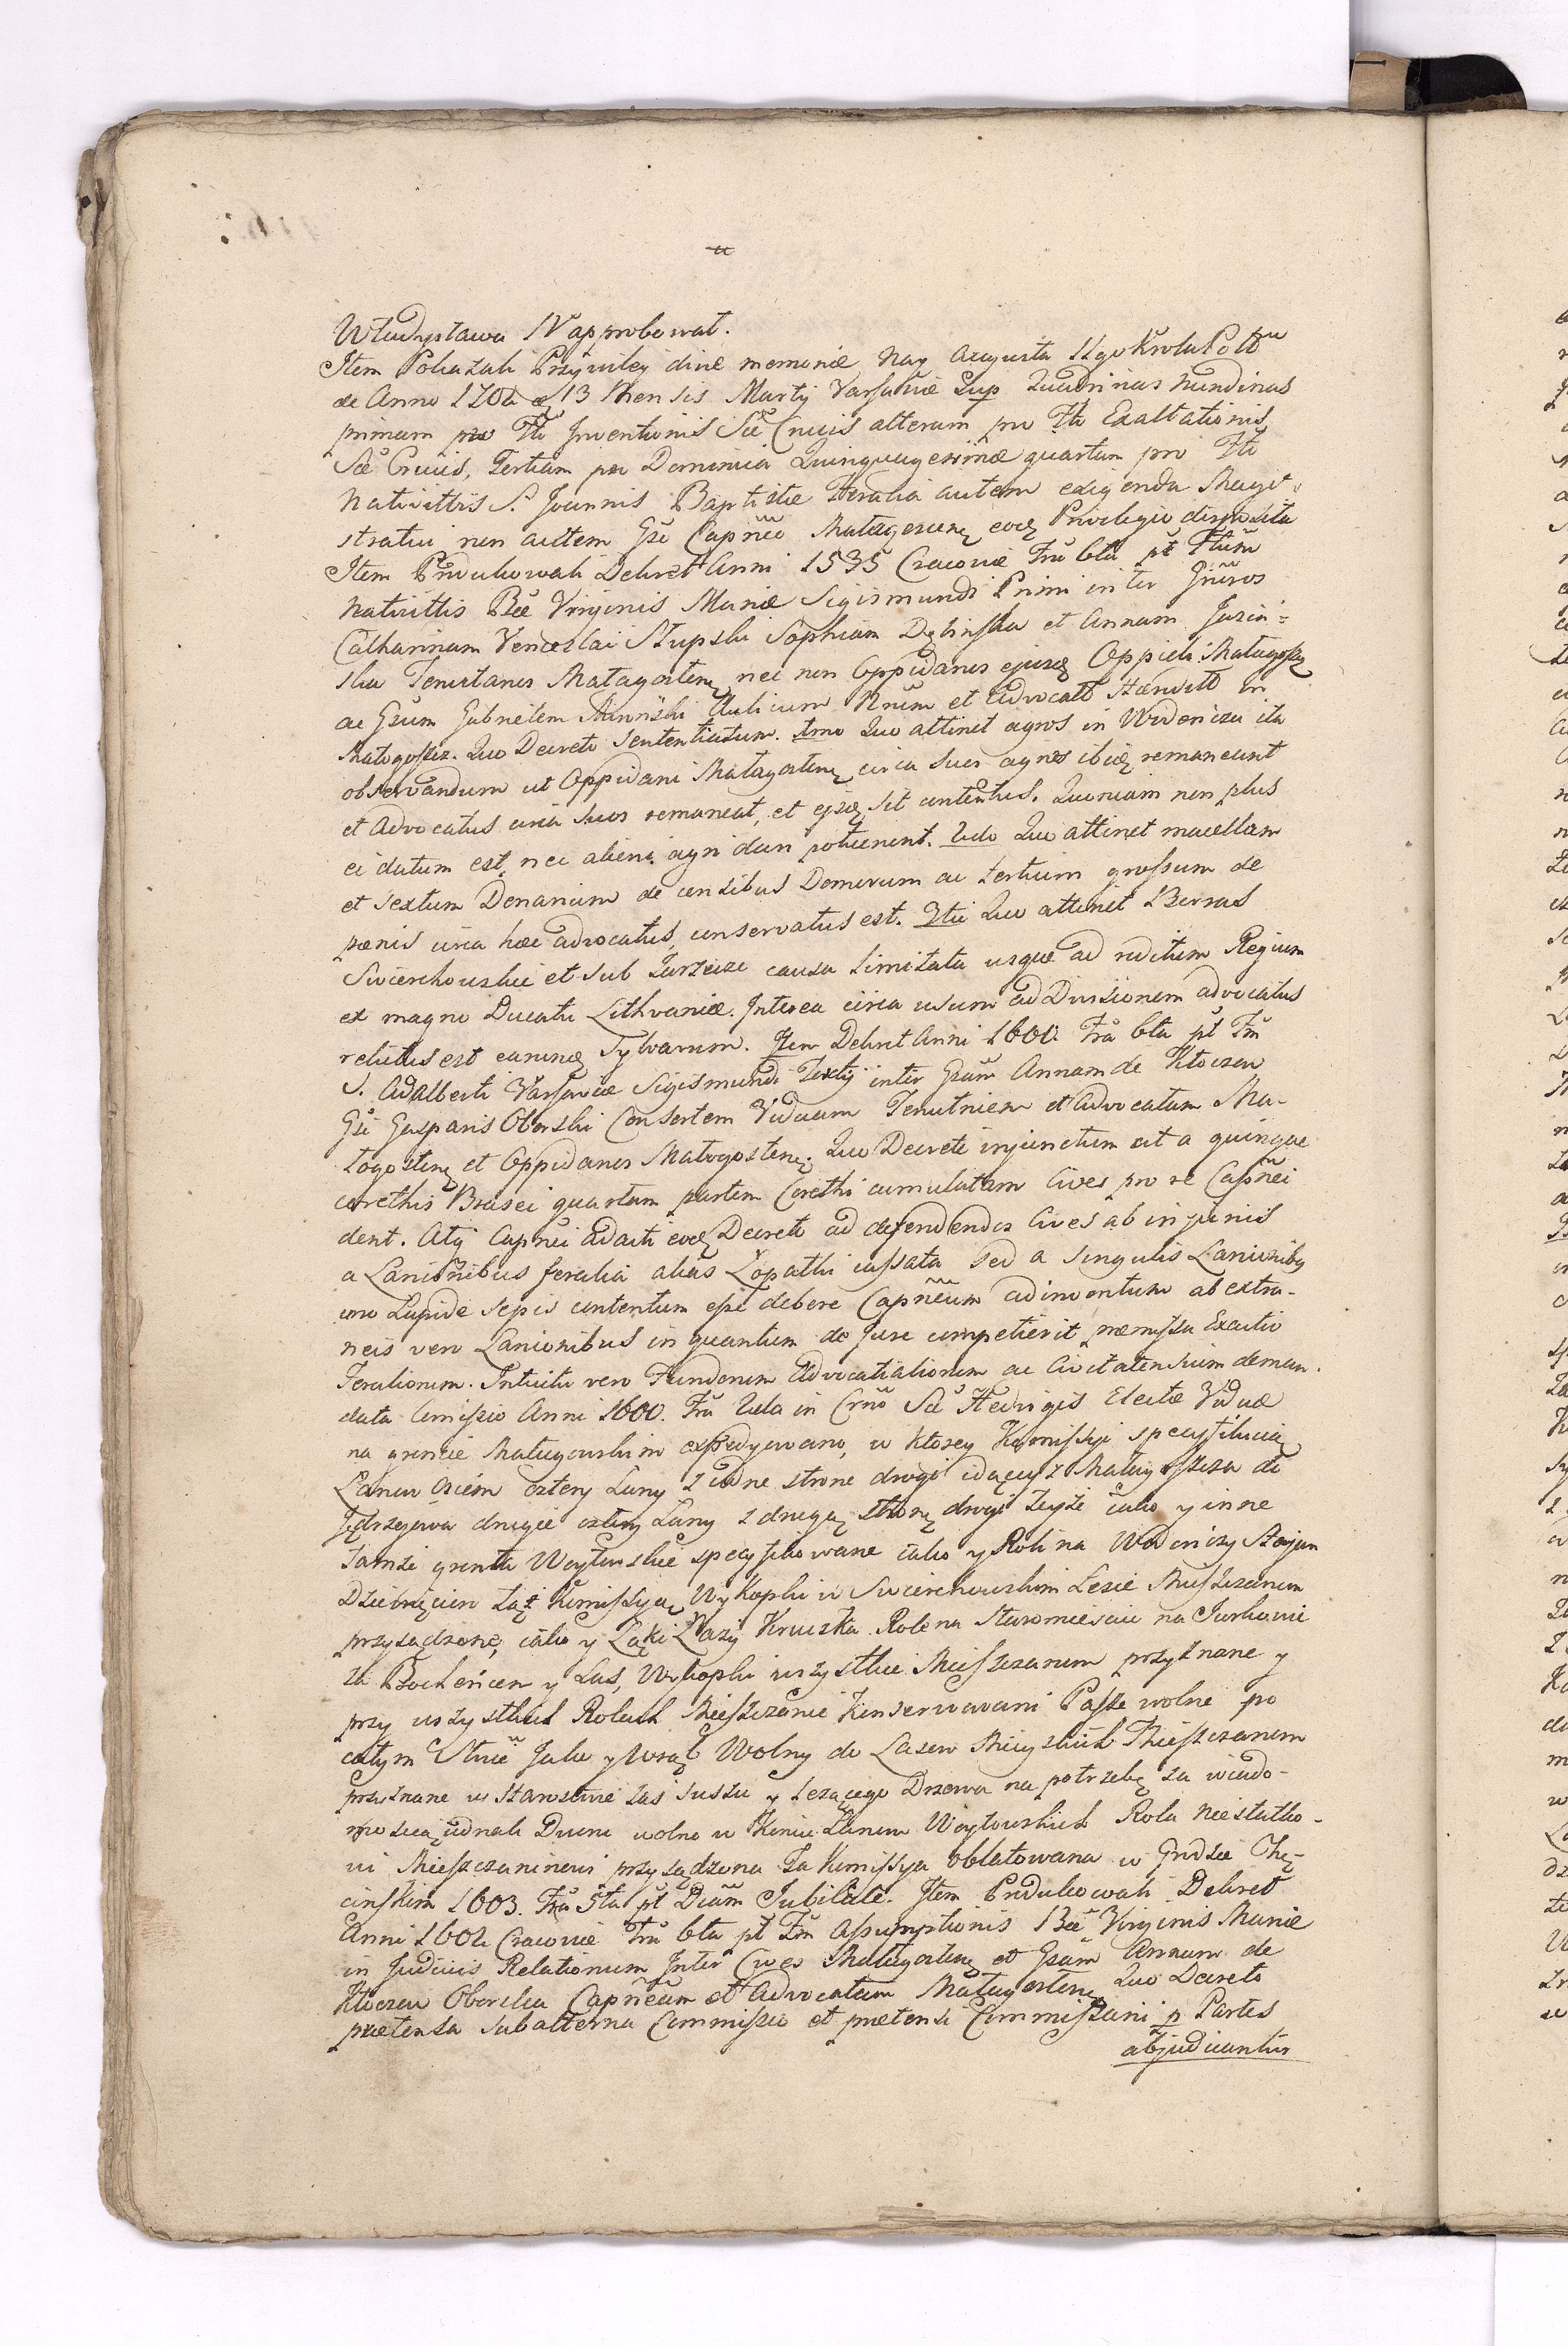 Władysława IV approbował.
Item Pokazali Przywiley divæ memoriæ Nay Augusta IIgo Króla Pol
de Anno 1702 13 Mensis Martij Varsaviæ Sup Quadrinas Nundinas
primam pro Fto Inventionis Sæ Crucis alteram pro Fto Exaltationis
Sæ Crucis, Tertiam pro Dominica Quinquagesimæ quartam pro Fto
Nativittis S. Joannis Baptistæ Foralia autem exigenda Magi-
stratui non autem Gso Capneo Małagoscen eod Privilegio disposita
Item Produkowali Dekret Anni 1535 Cracoviæ Fria 6ta pt Ftum
Nativittis Bæ Virginis Mariæ Sigismundi Primi inter Gnros
Catharinam Venceslai Słupski Sophiam Dębińska et Annam
ska Tenutarios Małagosten nec non Oppidanos ejusd Oppidi Małagosz
ac Gsum Gabrielem Aulicum Nrum et Advocatt Hæredtt in
Małogoszcz. Quo Decreto Sententiatum. 1mo Quo attinet agros in Wodenicza ita
observandum ut Oppidani Małagosten circa suos agros ibid remaneant
et Advocatus circa suos remaneat, et ejsd sit contentus. Quoniam non plus
ei datum est, nec alieni agri dari potuerunt. 2do Quo attinet macellam
et Sextum Denarium de censibus Domorum ac tertium grossum de
pænis circa hæc advocatus conservatus est. 3tio Quo attinet Borras
Swierchowskie et sub causa limitata usque ad reditum Regium
ex magno Ducatu Lithvaniæ. Interea circa usum ad Divisionem advocatus
relictus est earund Sylvarum. Item Dekret Anni 1600. Fria 6ta pt Ftum
S. Adalberti Varsaviæ Sigismundi Tertij inter Gsam Annam de Kłoczew
Gsi Gasparis Oborski Consortem Viduam Tenutriem et Advocatam Ma-
łogosten et Oppidanos Małogosten. Quo Decreto injunctum ut a quinque
corethis Brasei quartam partem Corethi cumulatam Cives pro re Capnei
dent. Atq Capnei adacti eod Decreto ad defendendos Cives ab injuriis
a Lanionibus foralia alias Łopatki cassata sed a singulis Lanionibus
uno Lapide Sepis contentum esse debere Capneum adinventum ab extra-
neis vero Lanionibus in quantum de Jure competierit præmissa Exactio
Foralionum. Intuitu vero Fundorum Advocatialionum ac Civitatensium deman-
data Comissio Anni 1600. Fria 2da in Crno Sæ Hedvigis Electæ Viduæ
na gruncie Małogowskim expedyowano, w ktorey Kommissyi specyfikacią
Łanów Osiem cztery Łany z iedne strone drogi idącey z Małogoszcza do
Jędrzejowa drugie cztery Łany z drugą stronę drogi teyże iako y inne
tamże grunta Woytowskie specyfikowane iako y Roli na Wodeniczy Stajan
Dziewięcien tąż Komissyą Wykopki w Swierchowskim Lesie Mieszczanom
przysądzone, iako y Łąki Łazy Kruszka Role na Staromieściu na Jurkowie
za Bocheńcem y Las, Wykopki wszystkie Mieszczanom przyznane y
przy wszystkich Rolach Mieszczanie konserwowani Passze wolne po
całym Stwie Jako y Wrąb Wolny do Lasow Mieyskich Mieszczanom
przyznane w Starostwie zaś suszu y leżącego Drzewa na potrzebę za wiado-
mością iednak Dworu wolne w Końcu Łanów Woytowskich Rola Niestatko-
wi Mieszczaninowi przysądzona Ta Komissya oblatowana w Grodzie Chę-
cińskim 1603. Fria 5ta pt Dnicam Jubilate. Item Produkowali Dekret
Anni 1602 Cracoviæ Fria 6ta pt Ftm Assumptionis Bæ Virginis Mariæ
in Judiciis Relationum Inter Cives Małagosten et Gsam Annam de
Kłoczew Oborska Capneam et Advocatam Małagosten Quo Decreto
prætensa subalterna Commissio et prætensi Commissarii p Partes
abjudicantur